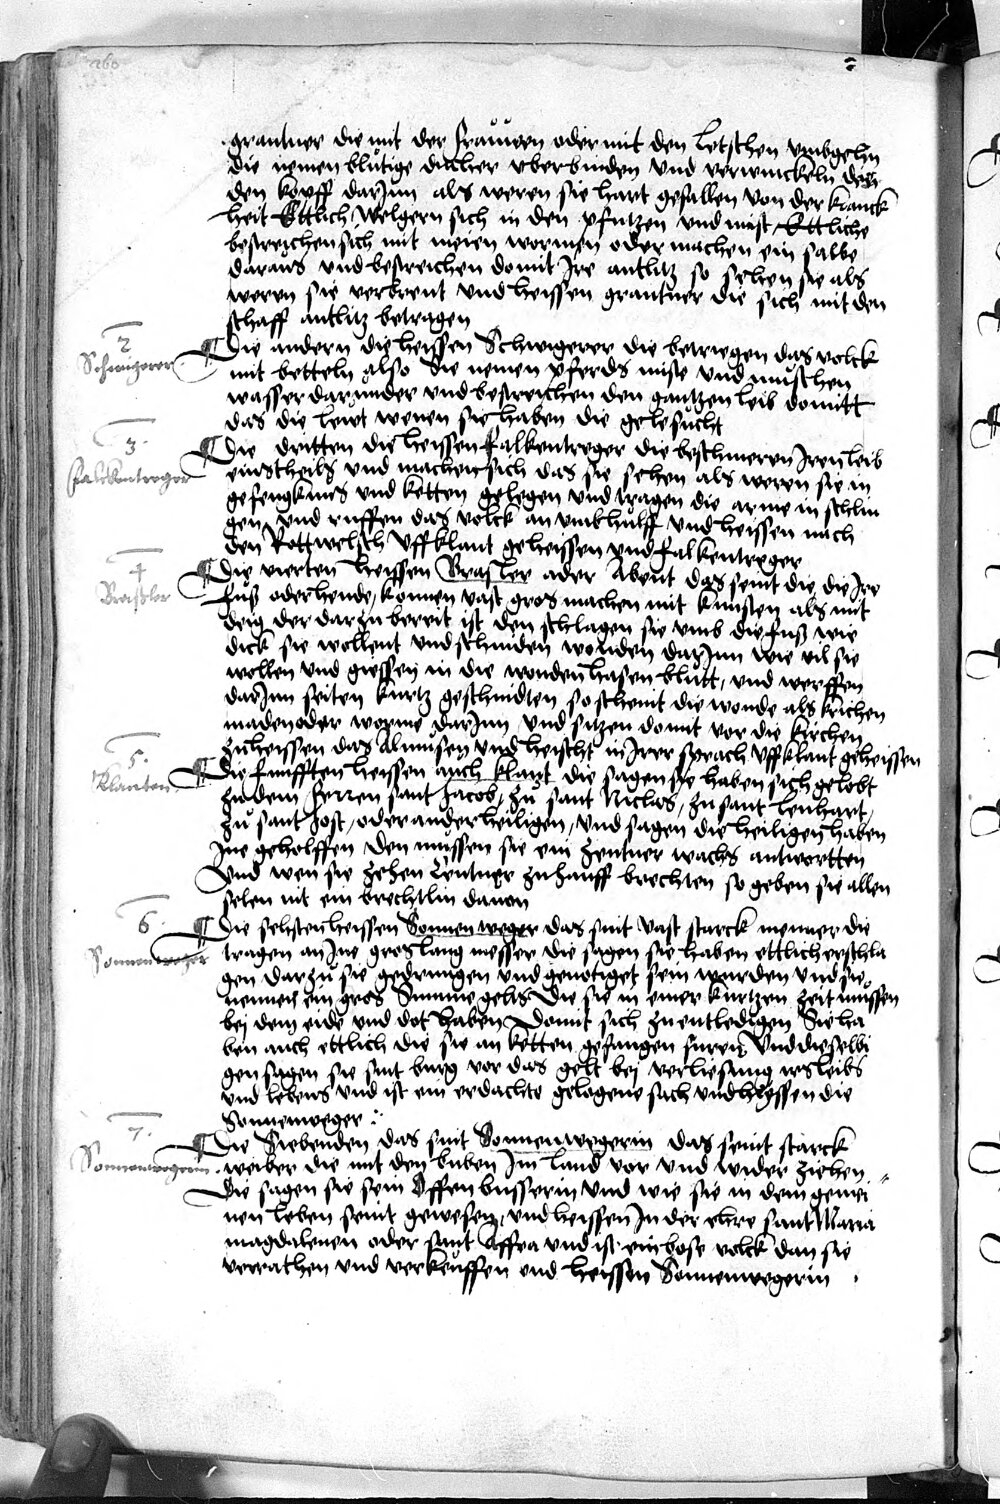 260
grantner die mit der frauwen oder mit den letschen vmbgehn
die nemen blutige ducher vberbinden vnd verwinckeln den
den kopff darJnn als weren sie hart gefallen von der kranck
heit Ettlich welgern sich in den pfutzen vnd mist Ettliche
bestreichen sich mit meien wormen oder machen ein salbe
daraus vnd bestreichen domit Jre antlitz so sehen sie als
weren sie verbrent vnd heissen grantner die sich mit den
schaff antlitz betragen
2
Schwigerer
Die andern die heissen Schwigerer die betriegen das volck
mit betteln also Sie nemen pferds miste vnd muschen
wasser darunder vnd bestreichen den gantzen leib domitt
das die leut wenen sie haben die gelesucht
3
Falckentreger
Die dritten die heissen falkentreger die beschmeren Jren leib
einstheils vnd machen sich das sie sehen als weren sie in
gefengknus vnd ketten gelegen vnd tragen die arme in schlin
gen vnd ruffen das volck an vmb hulff vnd heissen nach
den Rottwelsch vffklant geheissen vnd falkentreger
4
Brasler
Die vierten heissen Brasler oder Abeut das seint die die Jre
fuß oder hende konnen vast gros machen mit kunsten als mit
deig der darzu bereit ist den schlagen sie vmb die fuß wie
dick sie wollent vnd schniden wonden darJnn wie vil sie
wollen vnd giessen in die wonden hasen blutt, vnd werffen
darJnn seiten kurtz geschnidten so scheint die wonde als krichen
maden oder worme darJnn vnd sitzen domit vor die kirchen
zu heissen das Almusen vnd heischt in Jrer sprach vffklant geheissen
5
Klanten
Die funfften heissen auch klant die sagen sie haben sich gelobt
zu dem herren sant Jacob, zu sant Niclas, zu sant lenhart,
zu sant Jost, oder ander heiligen, vnd sagen die heiligen haben
Jne geholffen den mussen sie ein zentner wachs antwortten
Vnd wen sie zehen Centner zuhauff brechten so geben sie allen
selen nit ein brechtlin dauon
6
Sonnenweger
Die sehsten heissen Sonnenweger das sint vast starck menner die
tragen an Jne gros lang messer die sagen sie haben ettlich erschla
gen darzu sie gedrungen vnd genotiget sein wurden vnd sie
nennen ein gros Summe gelts die sie in einer kurtzen zeit mussen
bei dem eide vnd dot haben domit sich zu entledigen Sie ha
ben auch ettlich die sie an ketten gefangen furen vnd dieselbi
gen sagen sie sint burg vor das gelt bei verliesung irs leibs
vnd lebens vnd ist ein erdachte gelogene sach vnd heyssen die
Sonnenweger
7
Sonnenwegerin
Die Siebenden das sint Sonnenwegerin das seint starck
weiber die mit den buben Jm land vor vnd wider ziehen
Die sagen sie sein offen busserin vnd wie sie in dem gemei
nen leben seint gewesen, vnd heissen Jn der ehre sant Maria
magdalenen oder sant Affra vnd ist ein bose volck dan sie
verrathen vnd verkeuffen vnd heissen Sonnenwegerin